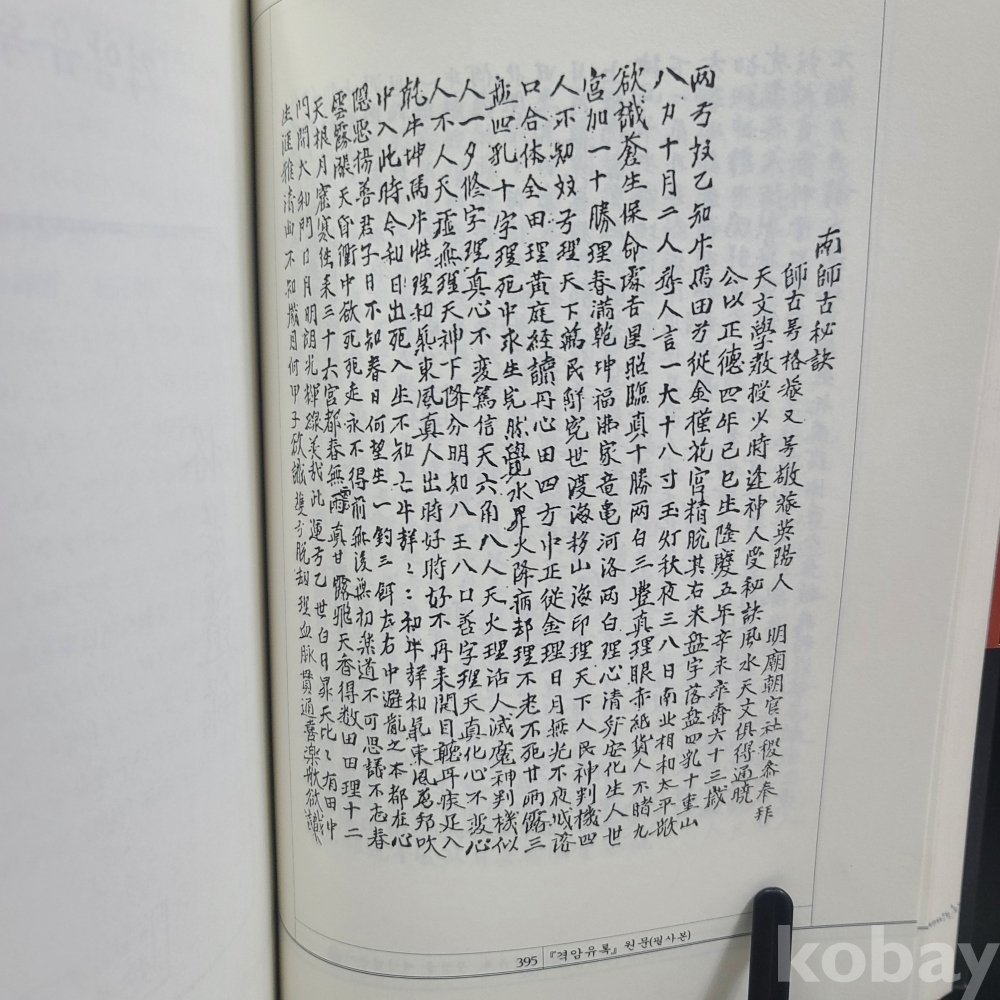 南師古秘訣
師古号格菴又号敬菴英陽人 明廟朝官社稷參奉拜
天文學敎授少時逢神人受秘訣風水天文俱得通曉
公以正德四年己巳生隆慶五年辛未卒壽六十三歲
兩弓双乙知牛馬田兮從金槿花宮精脫其右米盤字落盤四乳十重山
八力十月二人尋人言一大十八寸玉灯秋夜三八日南北相和太平歌
欲識蒼生保命處吉星照臨眞十勝兩白三豊眞理眼赤紙貨人不睹九
宮加一十勝理春滿乾坤福滿家竜龜河洛兩白理心淸身安化生人世
人不知双弓理天下萬民解寃世渡海移山海印理天下人民神判機四
口合体全田理黃庭経讀丹心田四方中正從金理日月無光不夜城落
盤四乳十字理死中求生完然覺水昇火降病却理不老不死甘雨露三
人一夕修字理眞心不変篤信天六角八人天火理活人滅魔神判機似
人不人天虛無理天神下降分明知八王八口善字理天眞化心不変心
乾牛坤馬牛性理和氣東風眞人出時好時好不再来開目聽耳疾足入
中入此時令和日出死入生不知亡牛鮮：：初牛鮮和氣東風萬邦吹
隱惡揚善君子日不知春日何望生一釣三餌左右中避亂之本都在心
雲霧漲天昏衢中欲死死走永不得前無後無初楽道不可思議不忘春
天根月窟寒往来三十六宮都春無雲雨眞甘露飛天香得数田田理十二
門開大和門日月明朗光輝線美哉此運弓乙世白日昇天比：有田中
生涯雅淸曲不知歲月何甲子欲識雙弓脫刦理血脉貫通喜楽歌欲識
395 『격암유록』 원문(필사본)
kobay